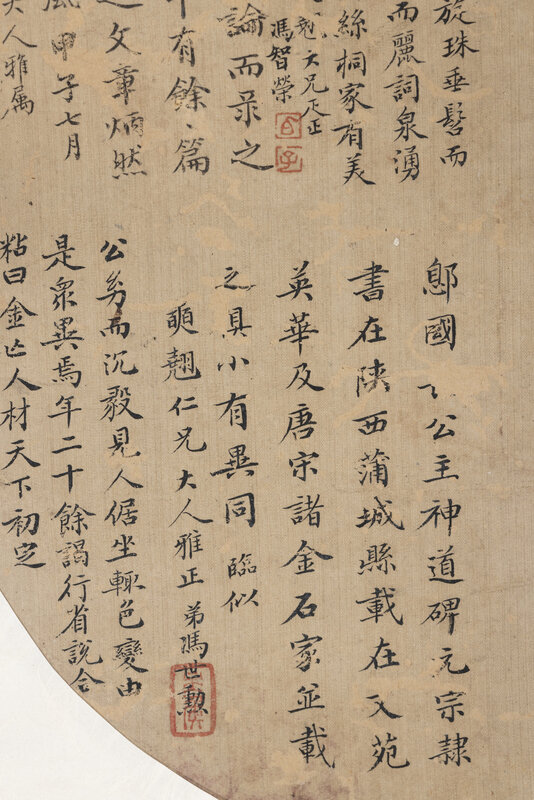 旋珠垂髫而
而麗詞泉湧
絲桐家有美
翹大兄疋正
馮智榮
論而录之
有餘、篇
文章炳然
甲子七月
大人雅属
鄎國〻公主神道碑元宗隸
書在陝西蒲城縣載在文苑
英華及唐宋諸金石家並載
之具小有異同 臨似
翹仁兄大人雅正 弟馮世勳
公㓜而沉毅見人倨坐輒色變由
是眾異焉年二十餘謁行省說合
粘曰金亡人材天下初定